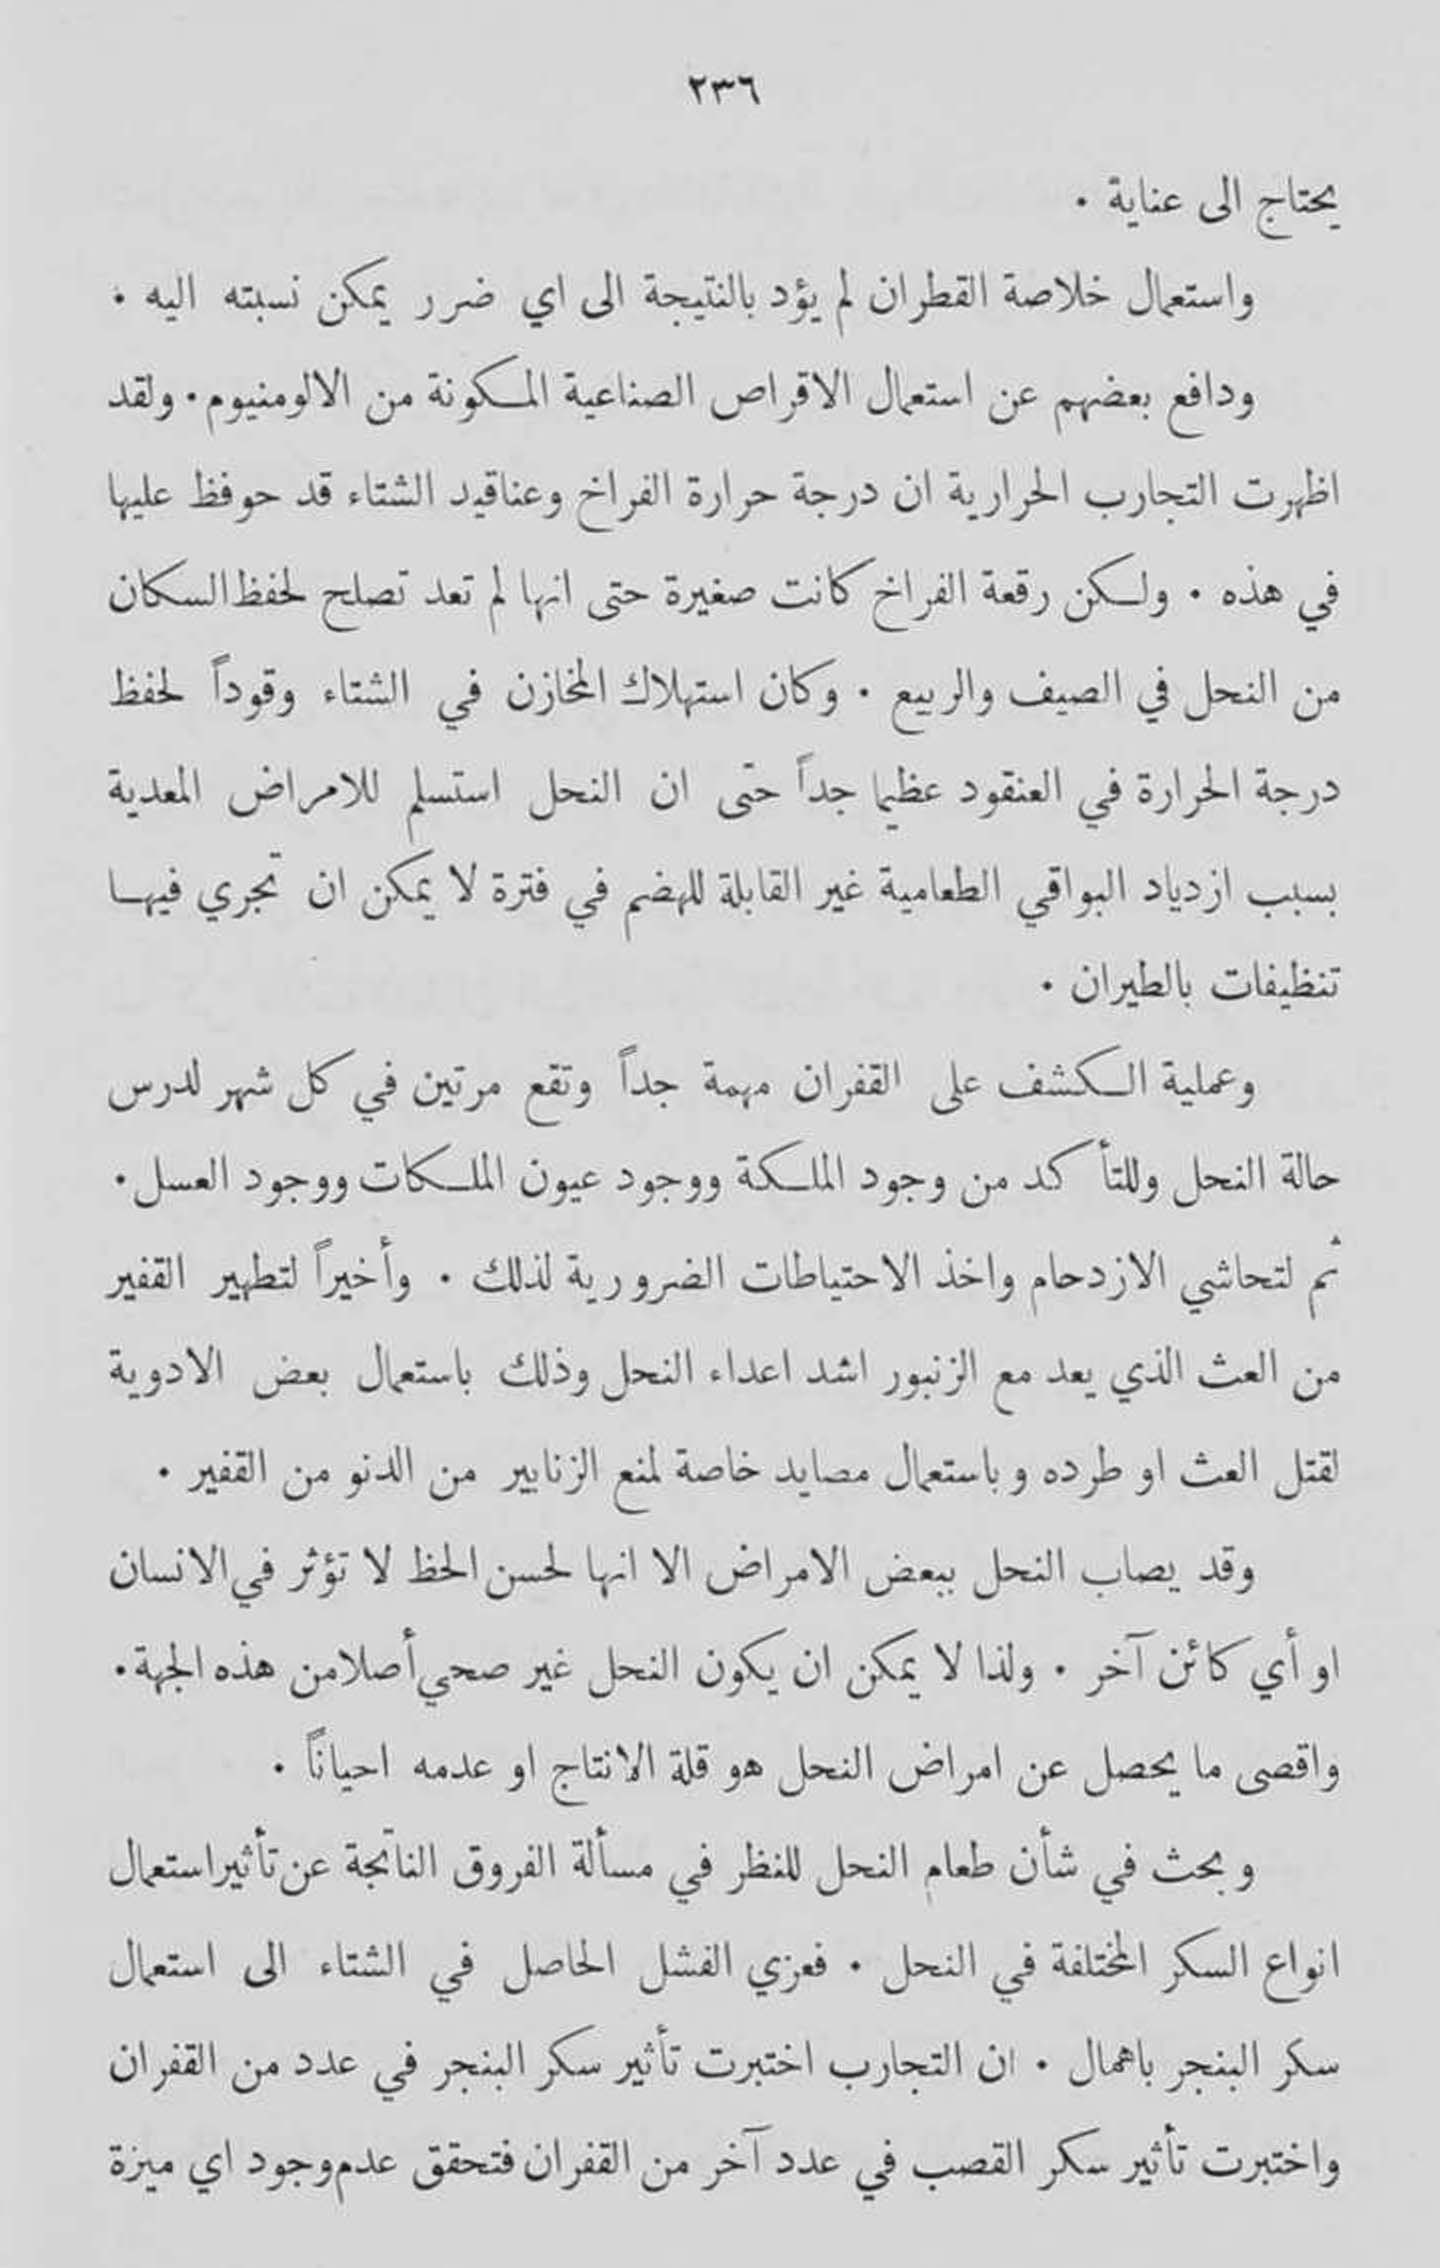 ٢٣٦
يحتاج الى عناية ·
واستعمال خلاصة القطران لم يؤد بالنتيجة الى اي ضرر يمكن نسبته اليه ·
ودافع بعضهم عن استعمال الاقراص الصناعية المكونة من الالومنيوم · ولقد
اظهرت التجارب الحرارية ان درجة حرارة الفراخ وعناقيد الشتاء قد حوفظ عليها
في هذه · ولكن رقعة الفراخ كانت صغيرة حتى انها لم تعد تصلح لحفظ السكان
من النحل في الصيف والربيع · وكان استهلاك المخازن في الشتاء وقوداً لحفظ
درجة الحرارة في العنقود عظيما جداً حتى ان النحل استسلم للامراض المعدية
بسبب ازدياد البواقي الطعامية غير القابلة للهضم في فترة لا يمكن ان تجري فيها
تنظيفات بالطيران ·
وعملية الكشف على القفران مهمة جداً وتقع مرتين في كل شهر لدرس
حالة النحل وللتأكد من وجود الملكة ووجود عيون الملكات ووجود العسل ·
ثم لتحاشي الازدحام واخذ الاحتياطات الضرورية لذلك · وأخيراً لتطهير القفير
من العث الذي يعد مع الزنبور اشد اعداء النحل وذلك باستعمال بعض الادوية
لقتل العث او طرده وباستعمال مصايد خاصة لمنع الزنابير من الدنو من القفير ·
وقد يصاب النحل ببعض الامراض الا انها لحسن الحظ لا تؤثر في الانسان
او أي كائن آخر · ولذا لا يمكن ان يكون النحل غير صحي أصلا من هذه الجهة ·
واقصى ما يحصل عن امراض النحل هو قلة الانتاج او عدمه احياناً ·
وبحث في شأن طعام النحل للنظر في مسألة الفروق الناتجة عن تأثير استعمال
انواع السكر المختلفة في النحل · فعزي الفشل الحاصل في الشتاء الى استعمال
سكر البنجر باهمال · ان التجارب اختبرت تأثير سكر البنجر في عدد من القفران
واختبرت تأثير سكر القصب في عدد آخر من القفران فتحقق عدم وجود اي ميزة